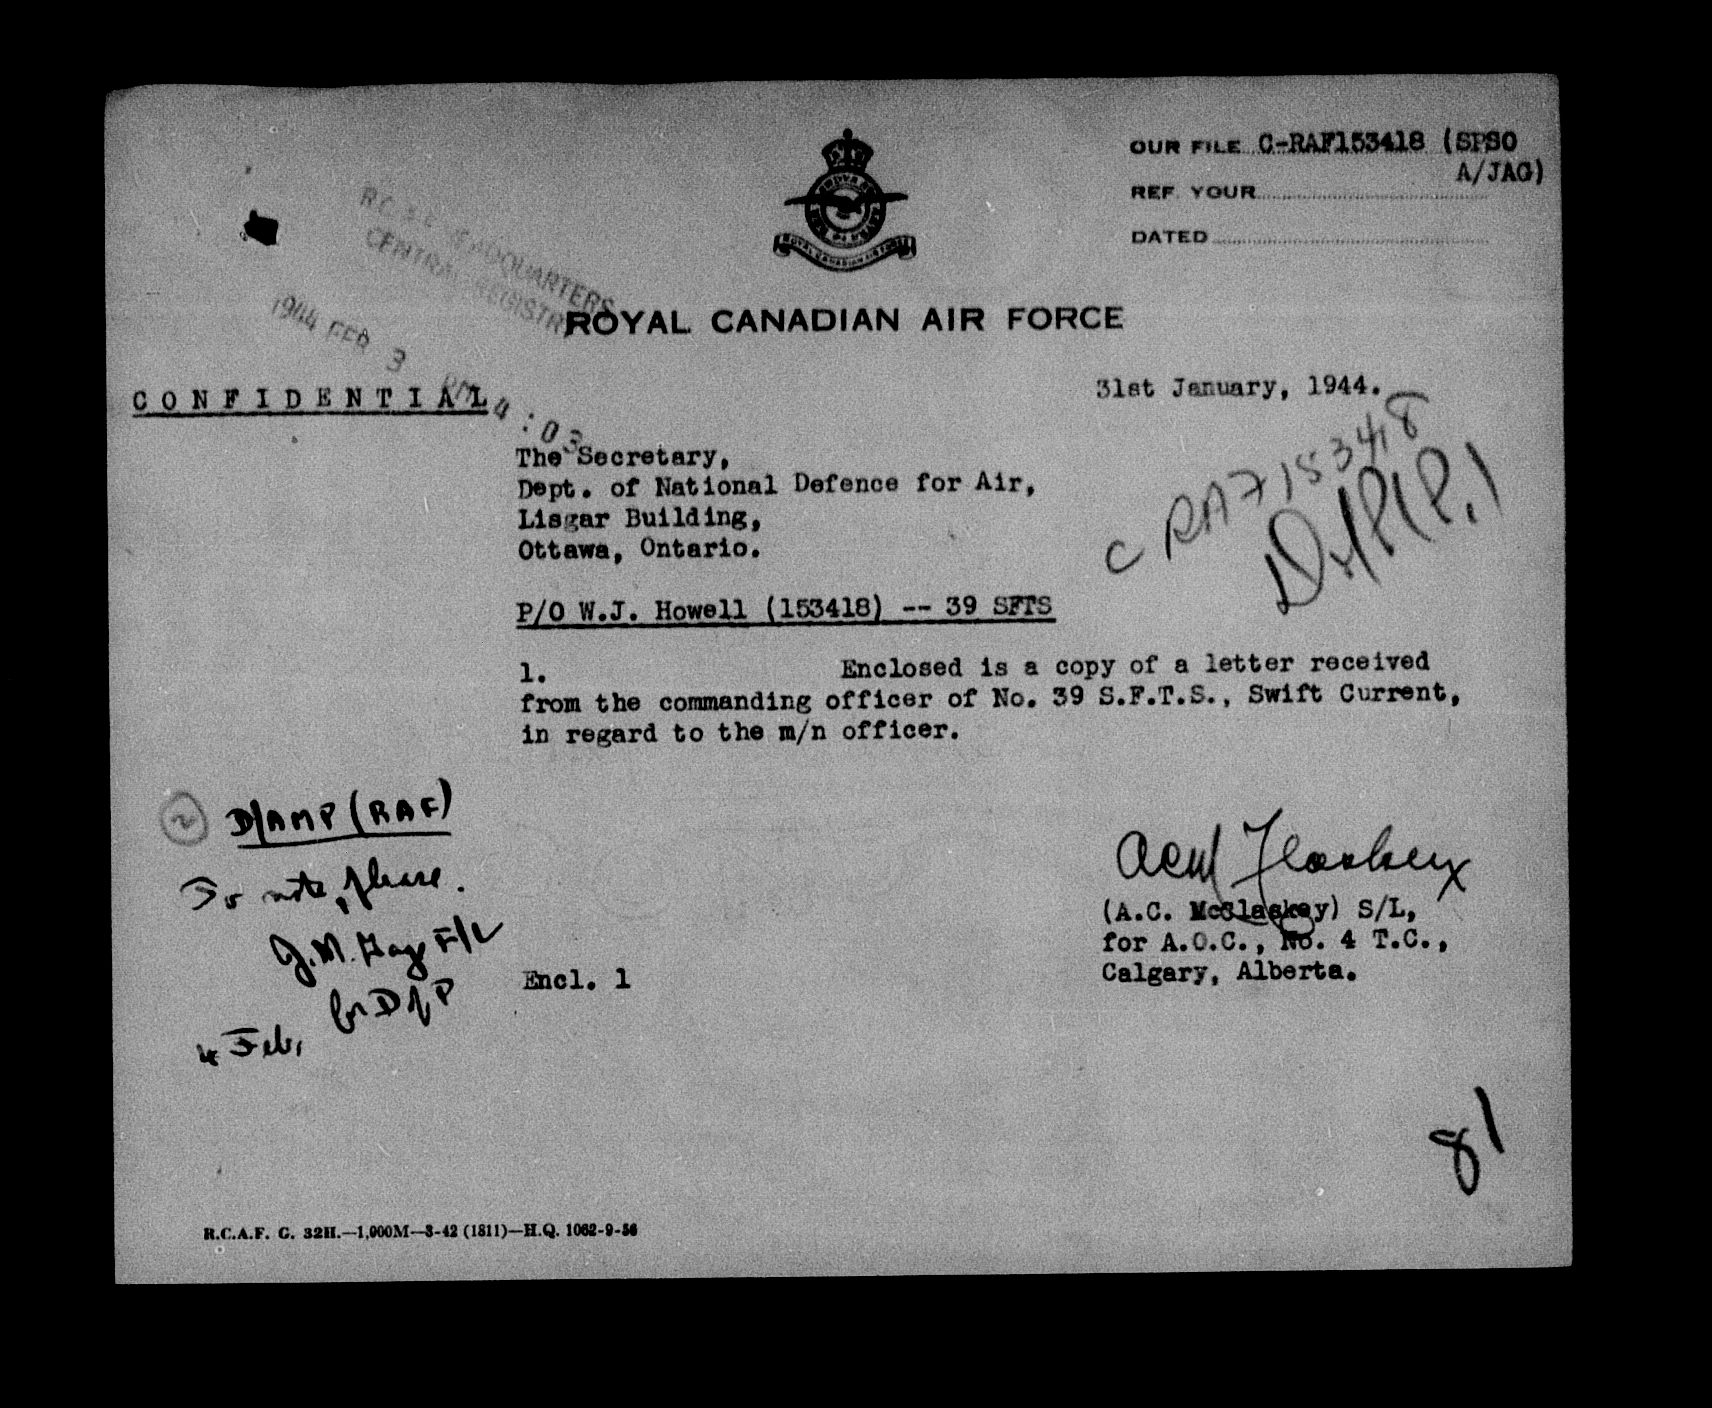 OUR FILE C-RAF153418 (SPSO
A/JAG)
REF. YOUR
DATED
R.C.A.F. HEADQUARTERS
CENTRAL REGISTRY
1944 FEB 3 PM 4:03
ROYAL CANADIAN AIR FORCE
CONFIDENTIAL
31st January, 1944.
The Secretary,
Dept. of National Defence for Air,
Lisgar Building,
Ottawa, Ontario.
C RAF 153418
P/O W.J. Howell (153418) -- 39 SFTS
1. Enclosed is a copy of a letter received
from the commanding officer of No. 39 S.F.T.S., Swift Current,
in regard to the m/n officer.
2 D/AMP (RAF)
For note, please.
F/L
for D of P
4 Feb.
(A.C. McClaskey) S/L,
for A.O.C., No. 4 T.C.,
Calgary, Alberta.
Encl. 1
81
R.C.A.F. G. 32H.—1,000M—3-42 (1811)—H.Q. 1062-9-36